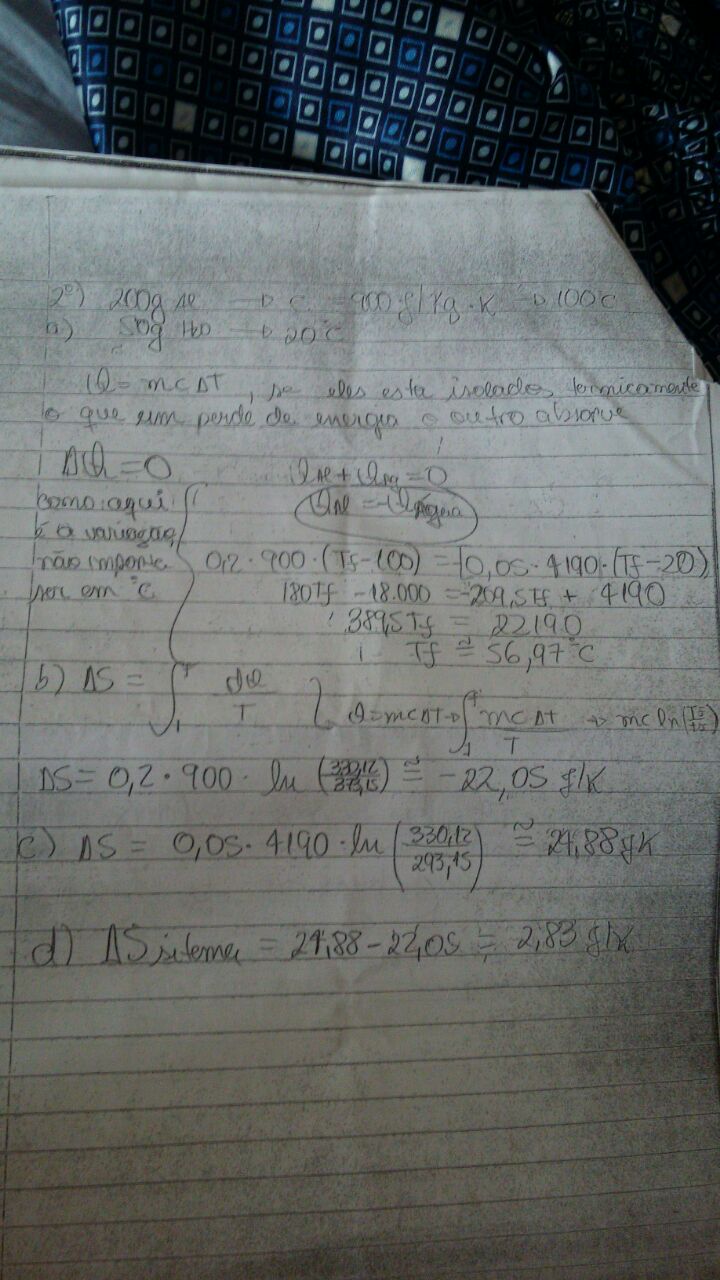 2º) 200g Al → c = 900 J/Kg·K → 100°C
a) 50g H2O → 20°C
Q = mcΔT, se eles esta isolados termicamente
o que um perde de energia o outro absorve
ΔQ = 0
QAl + QAg = 0
como aqui
é a variação
não importa
ser em °C
QAl = -QÁgua
0,2 · 900 · (Tf - 100) = -[0,05 · 4190 · (Tf - 20)]
180Tf - 18.000 = -209,5Tf + 4190
389,5Tf = 22190
Tf ≅ 56,97°C
b) ΔS = ∫ dQ/T Q = mcΔT → ∫ mcΔT/T → mc ln
ΔS = 0,2 · 900 · ln (330,12/373,15) ≅ -22,05 J/K
c) ΔS = 0,05 · 4190 · ln (330,12/293,15) ≅ 24,88 J/K
d) ΔSsistema = 24,88 - 22,05 = 2,83 J/K